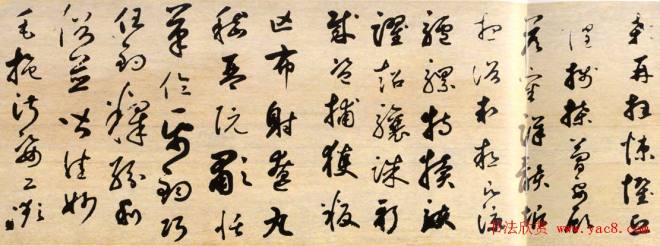 顙再拜悚懼恐
惶牋牒簡要顧
答審詳骸垢
想浴執熱願涼
驢騾特犢駭
躍超驤誅斬
賊盜捕獲叛
亡布射遼丸
嵇琴阮嘯恬
筆倫紙鈞巧
任釣釋紛利
俗並皆佳妙
毛施淑姿工顰
书法欣赏 www.yac8.com